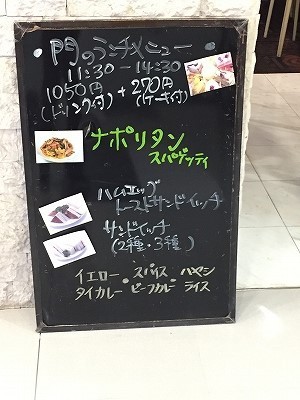 門のランチメニュー
11:30-14:30
1050円 + 270円
(ドリンク付) (ケーキ付)
ナポリタン
スパゲッティ
ハムエッグ
トーストサンドイッチ
サンドイッチ
(2種・3種)
イエロー・スパイス・ハヤシ
タイカレー ビーフカレー ライス